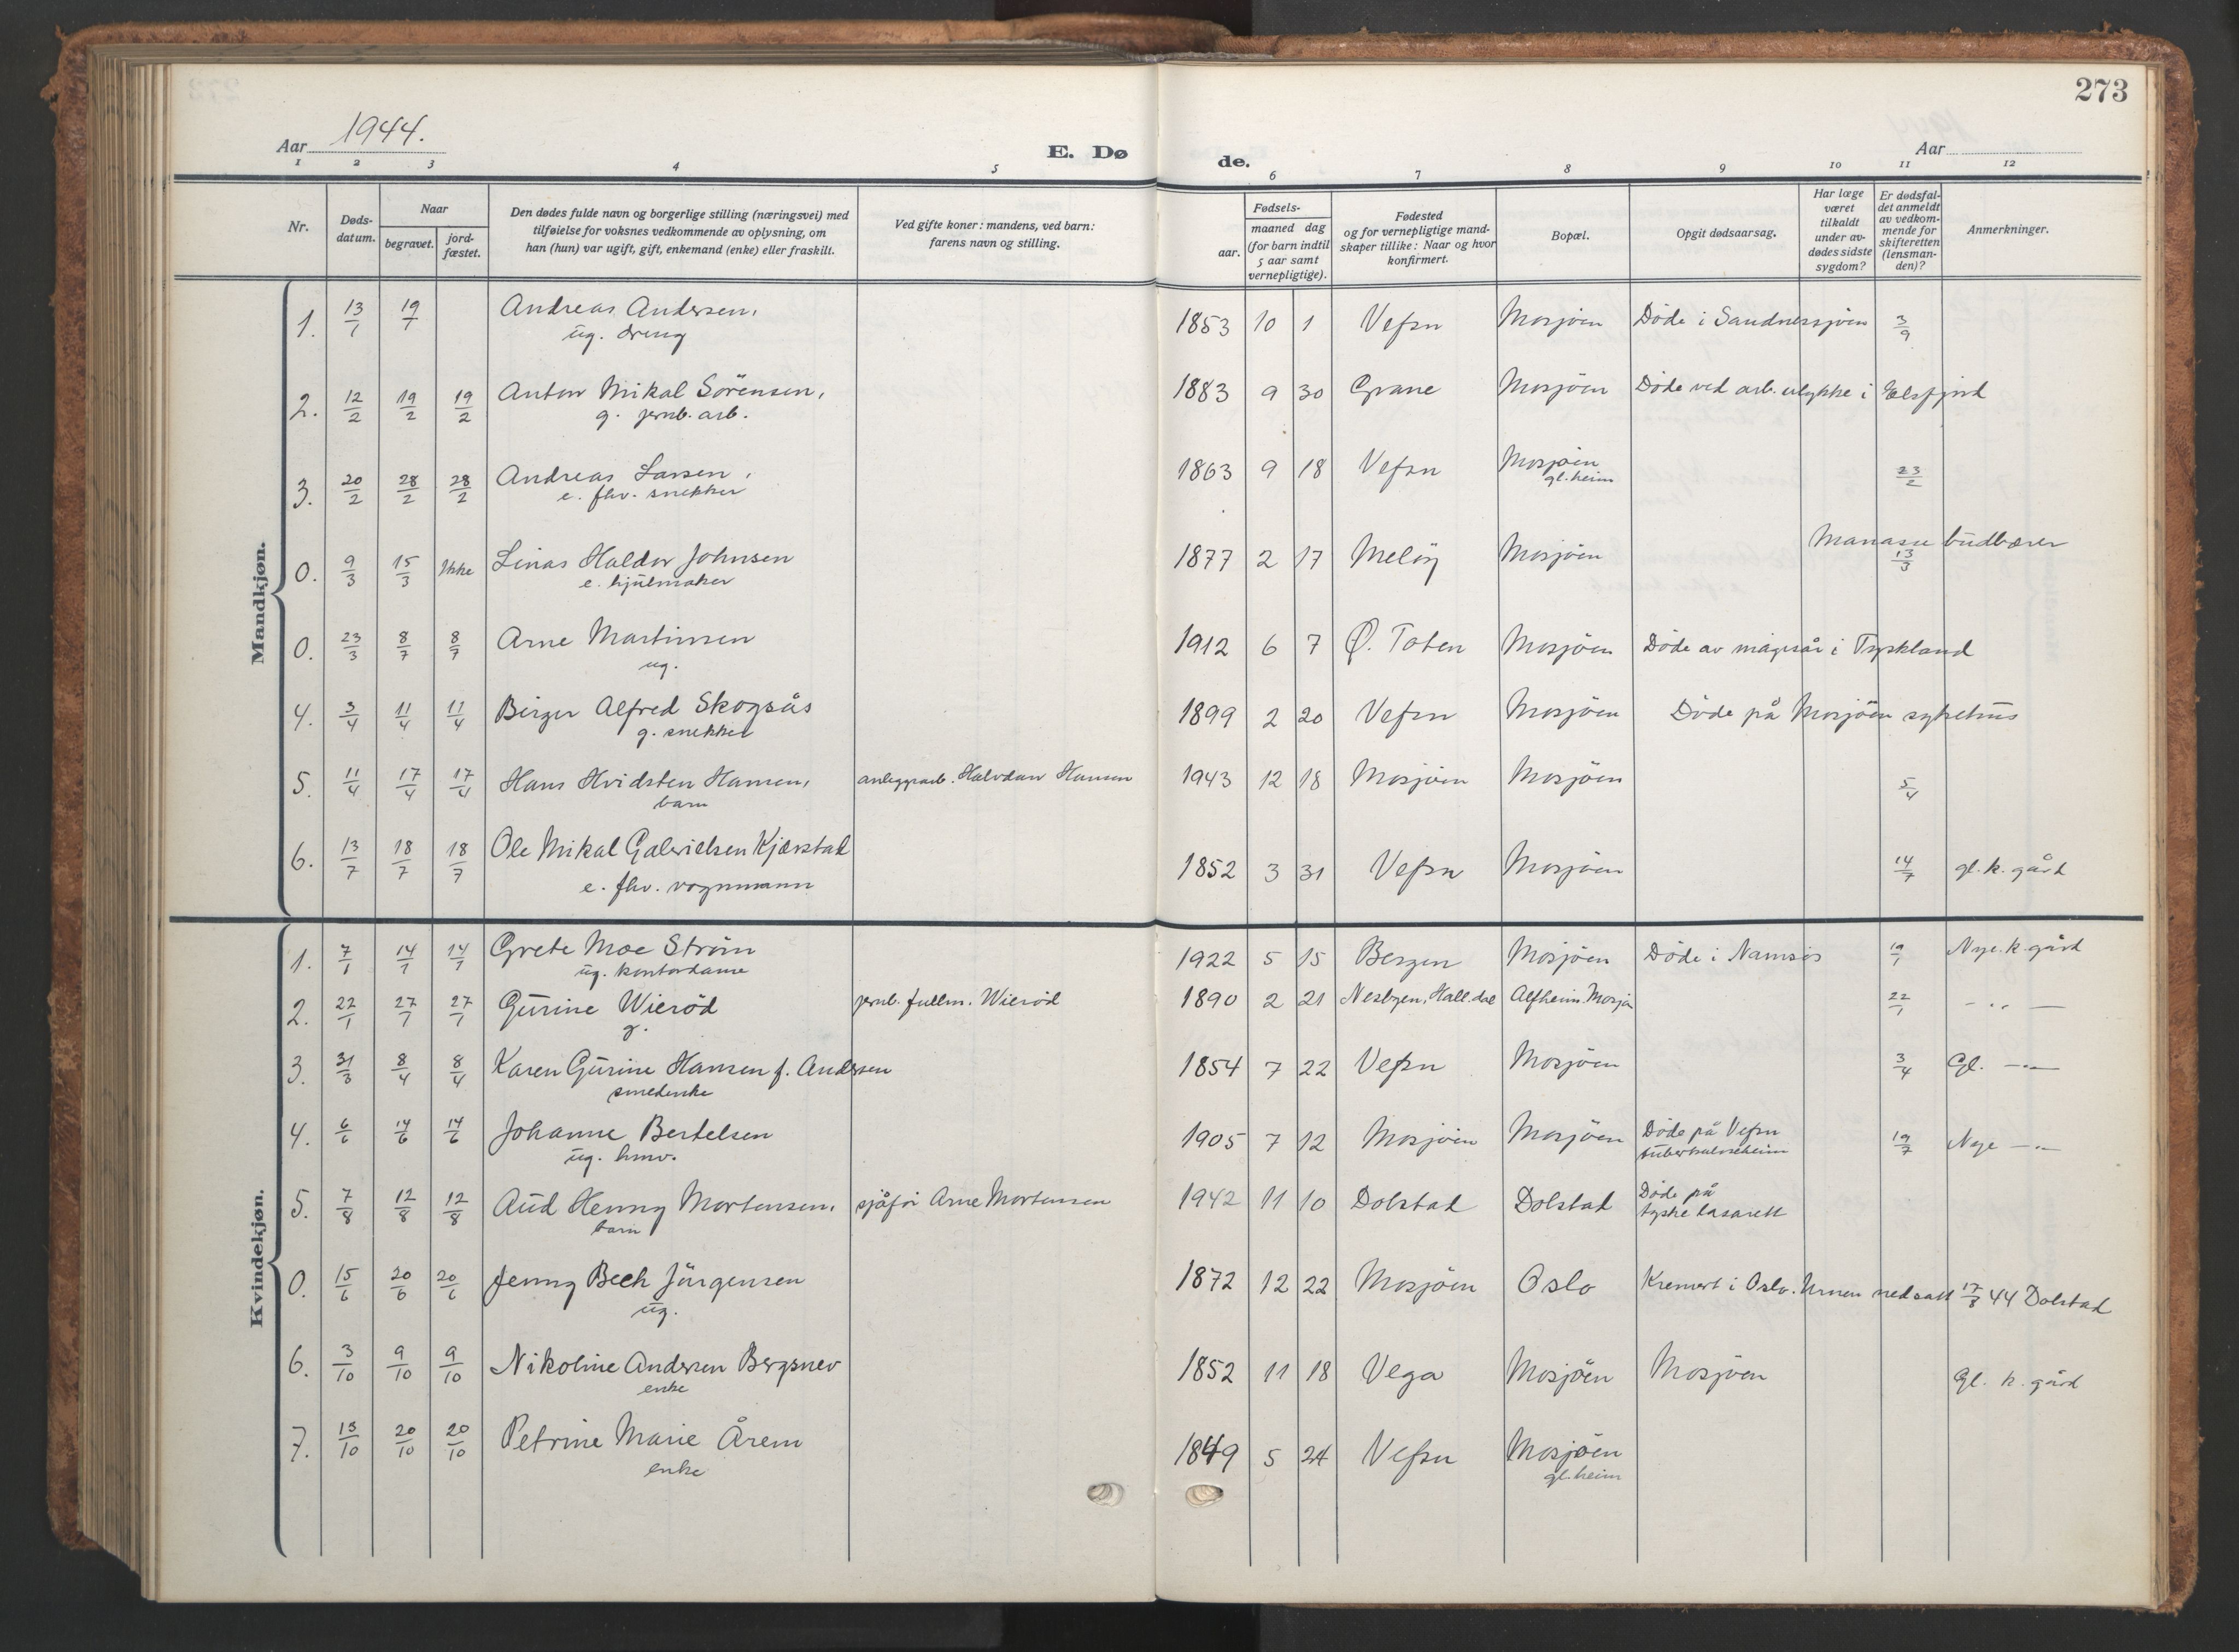 273
Aar 1944.
E. Dø
de.
Aar
1 2 3 4 5 6 7 8 9 10 11 12
Nr.
Døds-
datum.
Naar
begravet.
jord-
fæstet.
Den dødes fulde navn og borgerlige stilling (næringsvei) med
tilføielse for voksnes vedkommende av oplysning, om
han (hun) var ugift, gift, enkemand (enke) eller fraskilt.
Ved gifte koner: mandens, ved barn:
farens navn og stilling.
Fødsels-
aar.
maaned dag
(for barn indtil
5 aar samt
vernepligtige).
Fødested
og for vernepligtige mand-
skaper tillike: Naar og hvor
konfirmert.
Bopæl.
Opgit dødsaarsag.
Har læge
været
tilkaldt
under av-
dødes sidste
sygdom?
Er dødsfal-
det anmeldt
av vedkom-
mende for
skifteretten
(lensman-
den)?
Anmerkninger.
Mandkjøn.
1. 13/1 19/1 Andreas Andersen, 1853 10 1 Vefsn Mosjöen Döde i Sandnessjöen 3/9
ug. dreng
2. 12/2 19/2 19/2 Anton Mikal Sörensen, 1883 9 30 Grane Mosjöen Döde ved arb. ulykke i Elsfjord
g. jernb. arb.
3. 20/2 28/2 28/2 Andreas Larsen, 1863 9 18 Vefsn Mosjöen 23/2
e. fhv. snekker gl. heim
0. 9/3 15/3 Ikke Linas Haldor Johnsen 1877 2 17 Melöy Mosjöen 13/3 budbærer
e. hjulmaker
0. 23/3 8/7 8/7 Arne Martinsen 1912 6 7 Ø. Toten Mosjöen Döde av magesår i Tyskland
ug.
4. 3/4 11/4 11/4 Birger Alfred Skogsås 1899 2 20 Vefsn Mosjöen Döde på Mosjöen sykehus
g. snekker
5. 11/4 17/4 17/4 Hans Hvidsten Hansen, anleggsarb. Halvdan Hansen 1943 12 18 Mosjöen Mosjöen 5/4
barn
6. 13/7 18/7 18/7 Ole Mikal Gabrielsen Kjærstad 1852 3 31 Vefsn Mosjöen 14/7 gl. k. gård
e. fhv. vognmann
Kvindekjøn.
1. 7/1 14/1 14/1 Grete Moe Ström 1922 5 15 Bergen Mosjöen Döde i Namsos 19/1 Nye. k. gård
ug. kontordame
2. 22/1 27/1 27/1 Gurine Wieröd jernb. fullm. Wieröd 1890 2 21 Nesbyen, Hall.dal Alfheim. Mosjö 22/1 - .. -
g.
3. 31/3 8/4 8/4 Karen Gurine Hansen f. Andersen 1854 7 22 Vefsn Mosjöen 3/4 Gl. - .. -
smedenke
4. 6/6 14/6 14/6 Johanne Bertelsen 1905 7 12 Mosjöen Mosjöen Döde på Vefsn
tuberkuloseheim 19/7 Nye - .. -
ug. hmv.
5. 7/8 12/8 12/8 Aud Henny Mortensen, sjåför Arne Mortensen 1942 11 10 Dolstad Dolstad Döde på
tyske lasarett
barn
0. 15/6 20/6 20/6 Jenny Bech Jürgensen 1872 12 22 Mosjöen Oslo Kremert i Oslo. Urnen nedsatt 17/8 44 Dolstad
ug.
6. 3/10 9/10 9/10 Nikoline Andersen Bergsnev 1852 11 18 Vega Mosjöen Mosjöen gl. k. gård
enke
7. 13/10 20/10 20/10 Petrine Marie Årem 1849 5 24 Vefsn Mosjöen
enke gl. heim